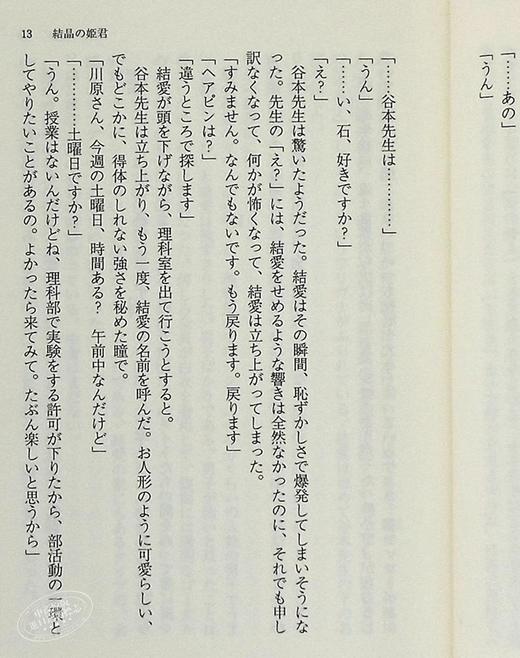 「……あの」
「うん」
13　結晶の姫君
「……谷本先生は…………」
「うん」
「……い、石、好きですか？」
「え？」
谷本先生は驚いたようだった。結愛はその瞬間、恥ずかしさで爆発してしまいそうにな
った。先生の「え？」には、結愛をせめるような響きは全然なかったのに、それでも申し
訳なくなって、何かが怖くなって、結愛は立ち上がってしまった。
「すみません。なんでもないです。もう戻ります。戻ります」
「ヘアピンは？」
「違うところで探します」
結愛が頭を下げながら、理科室を出て行こうとすると。
谷本先生は立ち上がり、もう一度、結愛の名前を呼んだ。お人形のように可愛らしい、
でもどこかに、得体のしれない強さを秘めた瞳で。
「川原さん、今週の土曜日、時間ある？　午前中なんだけど」
「…………土曜日ですか？」
「うん。授業はないんだけどね、理科部で実験をする許可が下りたから、部活動の一環と
してやりたいことがあるの。よかったら来てみて。たぶん楽しいと思うから」